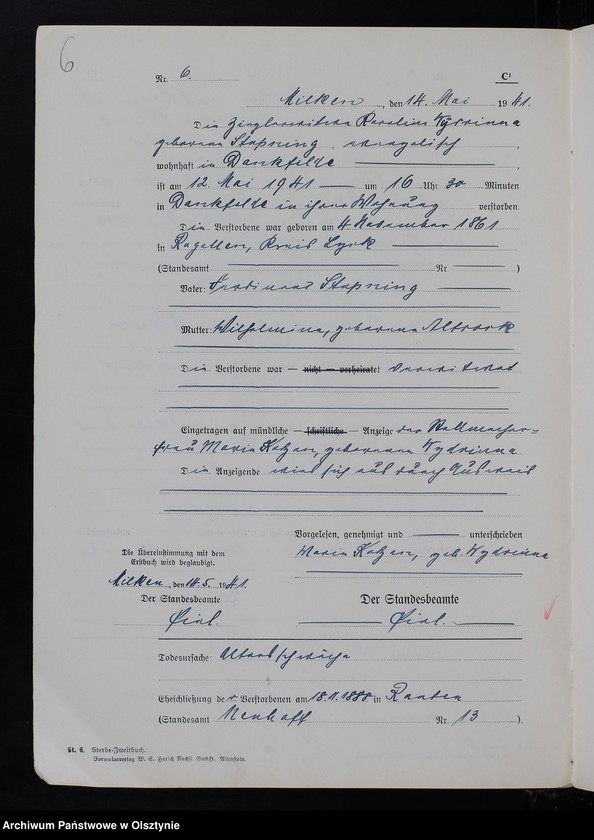 6
Nr. 6.
C¹
Milken, den 14. Mai 1941.
Die Karoline Kydrinna
geborene Stopning, evangelisch,
wohnhaft in Dankfelde
ist am 12. Mai 1941 um 16 Uhr 30 Minuten
in Dankfelde in ihrer Wohnung verstorben
Die Verstorbene war geboren am 4. November 1861
in Rogallen, Kreis Lyck
(Standesamt Nr. )
Vater: Ferdinand Stopning
Mutter: Wilhelmina, geborene Altrock
Die Verstorbene war — nicht — verheiratet verwitwet
Eingetragen auf mündliche — schriftliche — Anzeige der Stellmacher=
frau Maria geborene Kydrinna
Die Anzeigende wies sich aus durch Ausweis
Vorgelesen, genehmigt und unterschrieben
Maria geb. Kydrinna
Die Übereinstimmung mit dem
Erstbuch wird beglaubigt.
Milken, den 14. 5. 1941.
Der Standesbeamte
Der Standesbeamte
Todesursache: Altersschwäche
Eheschließung der Verstorbenen am 18.11.1888 in
(Standesamt Neuhoff Nr. 13 ).
St. C. Sterbe-Zweitbuch.
Formularverlag W. E. Harich Nachf. GmbH. Allenstein.
Archiwum Państwowe w Olsztynie